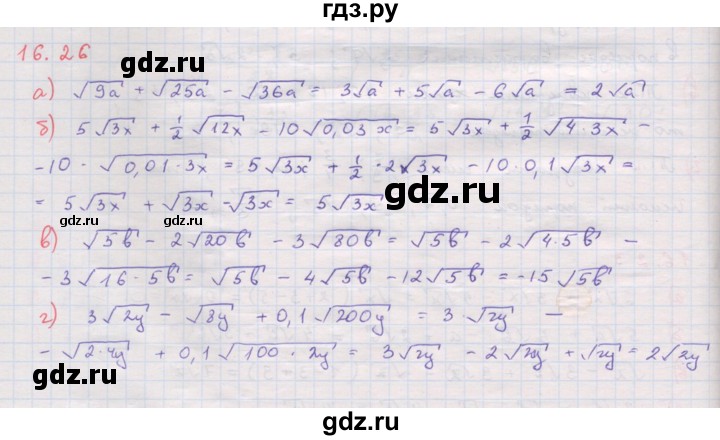 гдз.ру
16.26
gdz.ru gdz.ru
а) √9a + √25a - √36a = 3√a + 5√a - 6√a = 2√a
б) 5√3x + 1/2 √12x - 10√0,03x = 5√3x + 1/2 √4·3x -
-10 · √0,01·3x = 5√3x + 1/2 · 2√3x - 10·0,1√3x =
gdz.ru
= 5√3x + √3x - √3x = 5√3x
gdz.ru gdz.ru
в) √5b - 2√20b - 3√80b = √5b - 2√4·5b -
- 3√16·5b = √5b - 4√5b - 12√5b = -15√5b
г) 3√2y - √8y + 0,1√200y = 3√2y -
- √2·4y + 0,1√100·2y = 3√2y - 2√2y + √2y = 2√2y
gdz.ru gdz.ru
gdz.ru